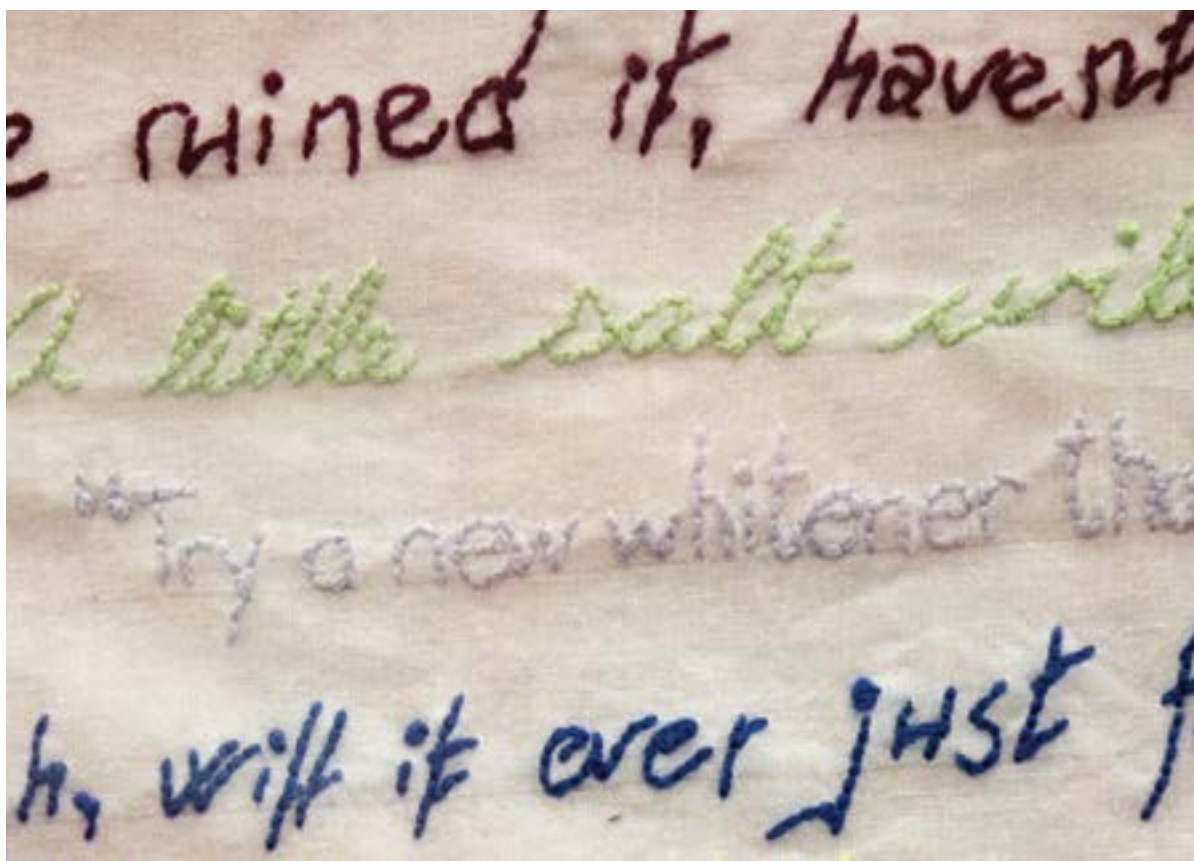 e ruined it, havent
A little salt will
"Try a new whitener tha
h, will it ever just f